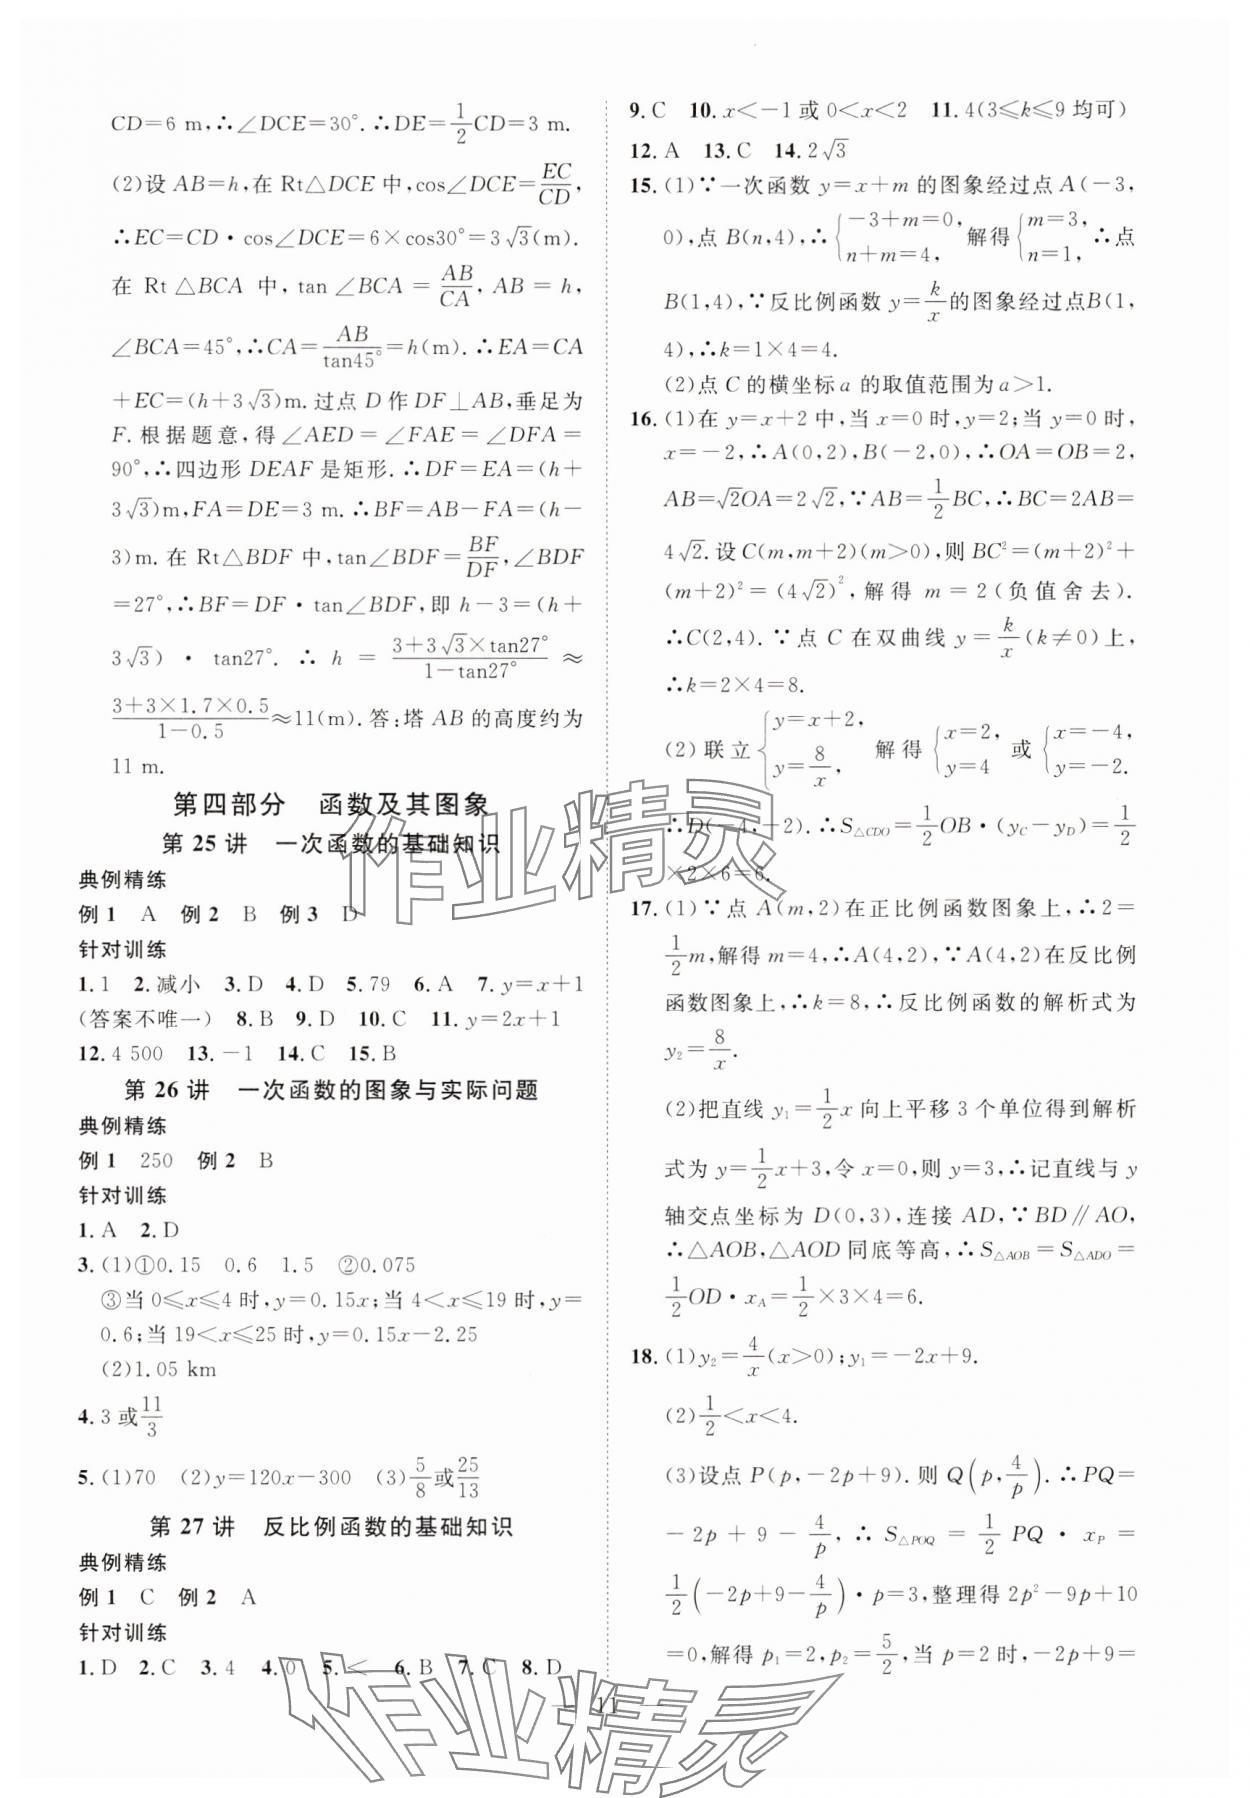 CD=6 m,∴∠DCE=30°.∴DE=1/2CD=3 m.
(2)设 AB=h,在 Rt△DCE 中,cos∠DCE=EC/CD,
∴EC=CD·cos∠DCE=6×cos30°=3√3(m).
在 Rt△BCA 中,tan∠BCA=AB/CA,AB=h,
∠BCA=45°,∴CA=AB/tan45°=h(m).∴EA=CA
+EC=(h+3√3)m.过点 D 作 DF⊥AB,垂足为
F.根据题意,得∠AED=∠FAE=∠DFA=
90°,∴四边形 DEAF 是矩形.∴DF=EA=(h+
3√3)m,FA=DE=3 m.∴BF=AB-FA=(h-
3)m.在 Rt△BDF 中,tan∠BDF=BF/DF,∠BDF
=27°,∴BF=DF·tan∠BDF,即 h-3=(h+
3√3)·tan27°.∴h=(3+3√3×tan27°)/(1-tan27°)≈
(3+3×1.7×0.5)/(1-0.5)≈11(m).答:塔 AB 的高度约为
11 m.
第四部分 函数及其图象
第 25 讲 一次函数的基础知识
典例精练
例1 A 例2 B 例3 D
针对训练
1.1 2.减小 3.D 4.D 5.79 6.A 7.y=x+1
(答案不唯一) 8.B 9.D 10.C 11.y=2x+1
12.4 500 13.-1 14.C 15.B
第 26 讲 一次函数的图象与实际问题
典例精练
例1 250 例2 B
针对训练
1.A 2.D
3.(1)①0.15 0.6 1.5 ②0.075
③当 0≤x≤4 时,y=0.15x;当 4<x≤19 时,y=
0.6;当 19<x≤25 时,y=0.15x-2.25
(2)1.05 km
4.3或11/3
5.(1)70 (2)y=120x-300 (3)5/8或25/13
第 27 讲 反比例函数的基础知识
典例精练
例1 C 例2 A
针对训练
1.D 2.C 3.4 4.0 5.< 6.B 7.C 8.D
9.C 10.x<-1 或 0<x<2 11.4(3≤k≤9 均可)
12.A 13.C 14.2√3
15.(1)∵一次函数 y=x+m 的图象经过点 A(-3,
0),点 B(n,4),∴{-3+m=0, n+m=4, 解得{m=3, n=1, ∴点
B(1,4),∵反比例函数 y=k/x的图象经过点B(1,
4),∴k=1×4=4.
(2)点 C 的横坐标 a 的取值范围为 a>1.
16.(1)在 y=x+2 中,当 x=0 时,y=2;当 y=0 时,
x=-2,∴A(0,2),B(-2,0),∴OA=OB=2,
AB=√2OA=2√2,∵AB=1/2BC,∴BC=2AB=
4√2.设 C(m,m+2)(m>0),则 BC²=(m+2)²+
(m+2)²=(4√2)²,解得 m=2(负值舍去).
∴C(2,4).∵点 C 在双曲线 y=k/x(k≠0)上,
∴k=2×4=8.
(2)联立{y=x+2, y=8/x, 解得{x=2, y=4 或{x=-4, y=-2.
∴D(-4,-2).∴S△CDO=1/2OB·(yC-yD)=1/2
×2×6=6.
17.(1)∵点 A(m,2)在正比例函数图象上,∴2=
1/2m,解得 m=4,∴A(4,2),∵A(4,2)在反比例
函数图象上,∴k=8,∴反比例函数的解析式为
y₂=8/x.
(2)把直线 y₁=1/2x 向上平移 3 个单位得到解析
式为 y=1/2x+3,令 x=0,则 y=3,∴记直线与 y
轴交点坐标为 D(0,3),连接 AD,∵BD∥AO,
∴△AOB,△AOD 同底等高,∴S△AOB=S△ADO=
1/2OD·xA=1/2×3×4=6.
18.(1)y₂=4/x(x>0);y₁=-2x+9.
(2)1/2<x<4.
(3)设点 P(p,-2p+9).则 Q(p,4/p).∴PQ=
-2p+9-4/p,∴S△POQ=1/2PQ·xP=
1/2(-2p+9-4/p)·p=3,整理得 2p²-9p+10
=0,解得 p₁=2,p₂=5/2,当 p=2 时,-2p+9=
11
作业精灵
作业精灵